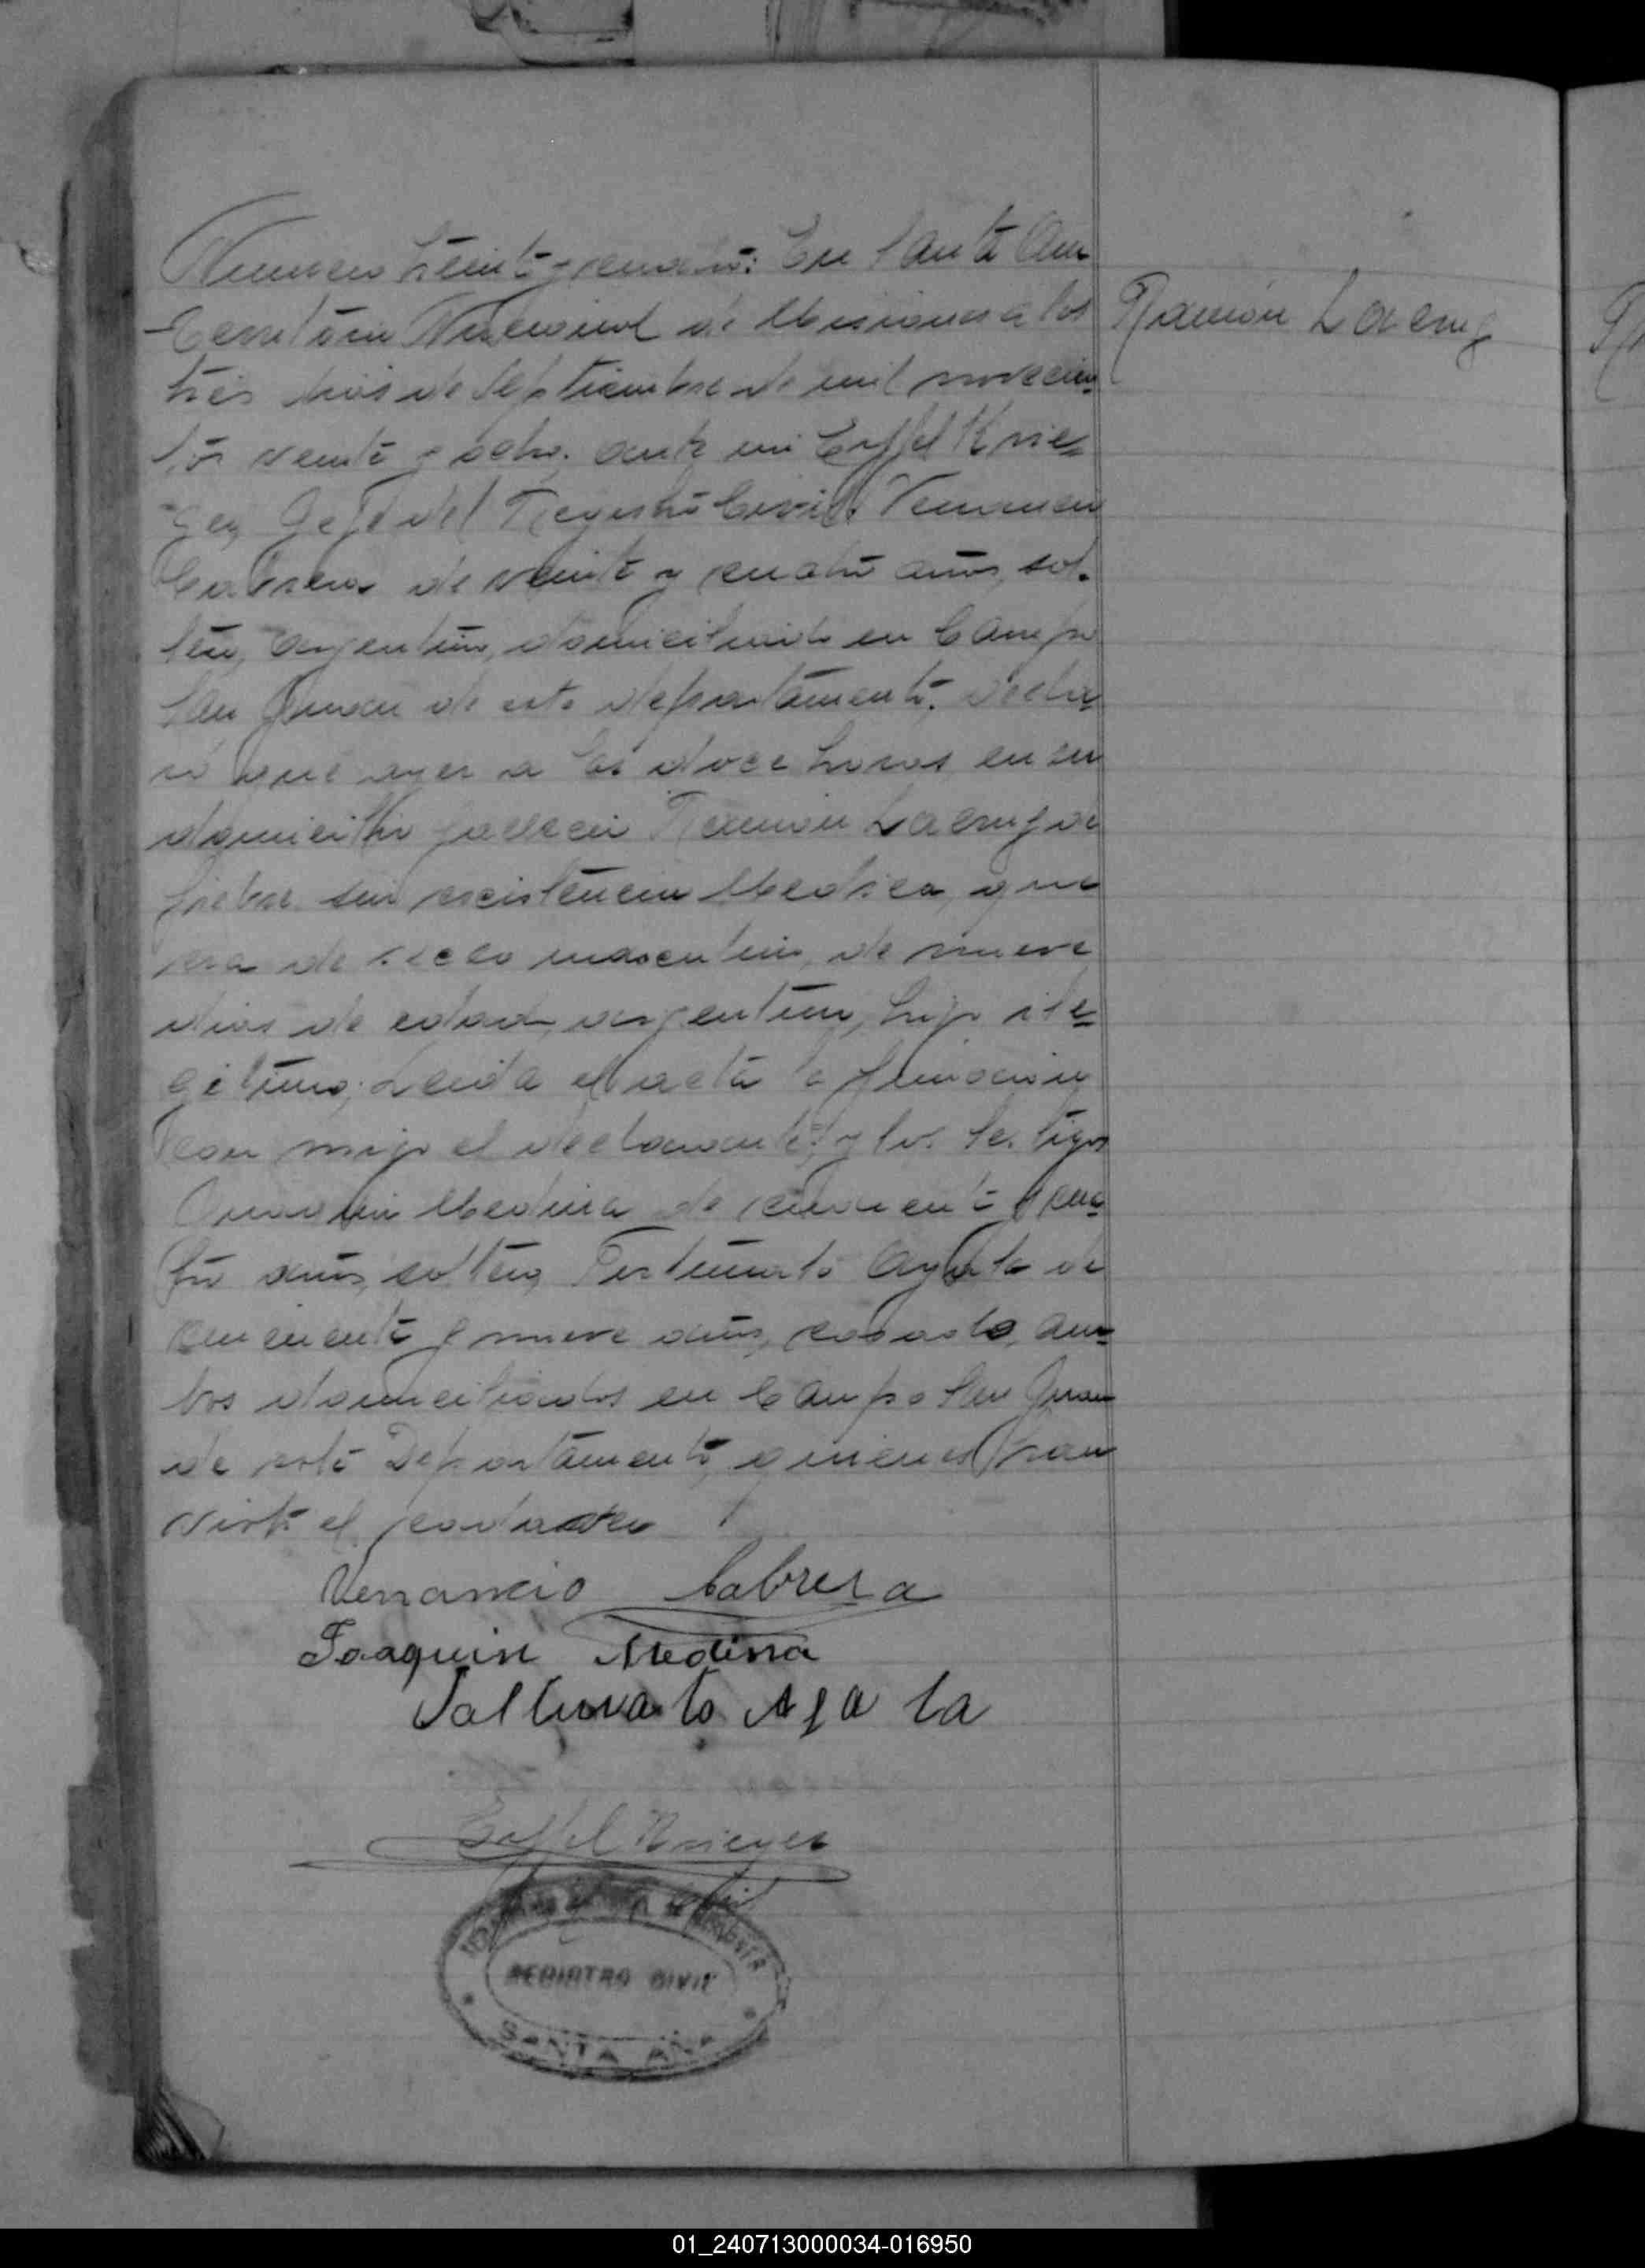 Numero treinta y cuatro: En Santa Ana
Territorio Nacional de Misiones a los
Ramón Lacruz
tres dias de Septiembre de mil novecien-
tos veinte y ocho. ante mi Eiffel Krie-
ger, Gefe del Registro Civil. Venancio
Cabrera de veinte y cuatro años, sol-
tero, argentino, domiciliado en Campo
San Juan de este departamento, decla-
ró que ayer a las doce horas en su
domicilio fallecio Ramón de
fiebre sin asistencia Medica, que
era de sexo masculino, de nueve
dias de edad, argentino, hijo ile-
gitimo; Leida el acta la firmaron
con migo el declarante y los testigos
Juaquin Medina de cincuenta y cua-
tro años, soltero, Fortunato Ayala de
cincuenta y nueve años, casado, am-
bos domiciliados en Campo San Juan
de este Departamento, quienes han
visto el cadaver
Venancio Cabrera
Joaquin Medina
Ayala
Eiffel Krieger
REGISTRO CIVIL
SANTA ANA
01_240713000034-016950